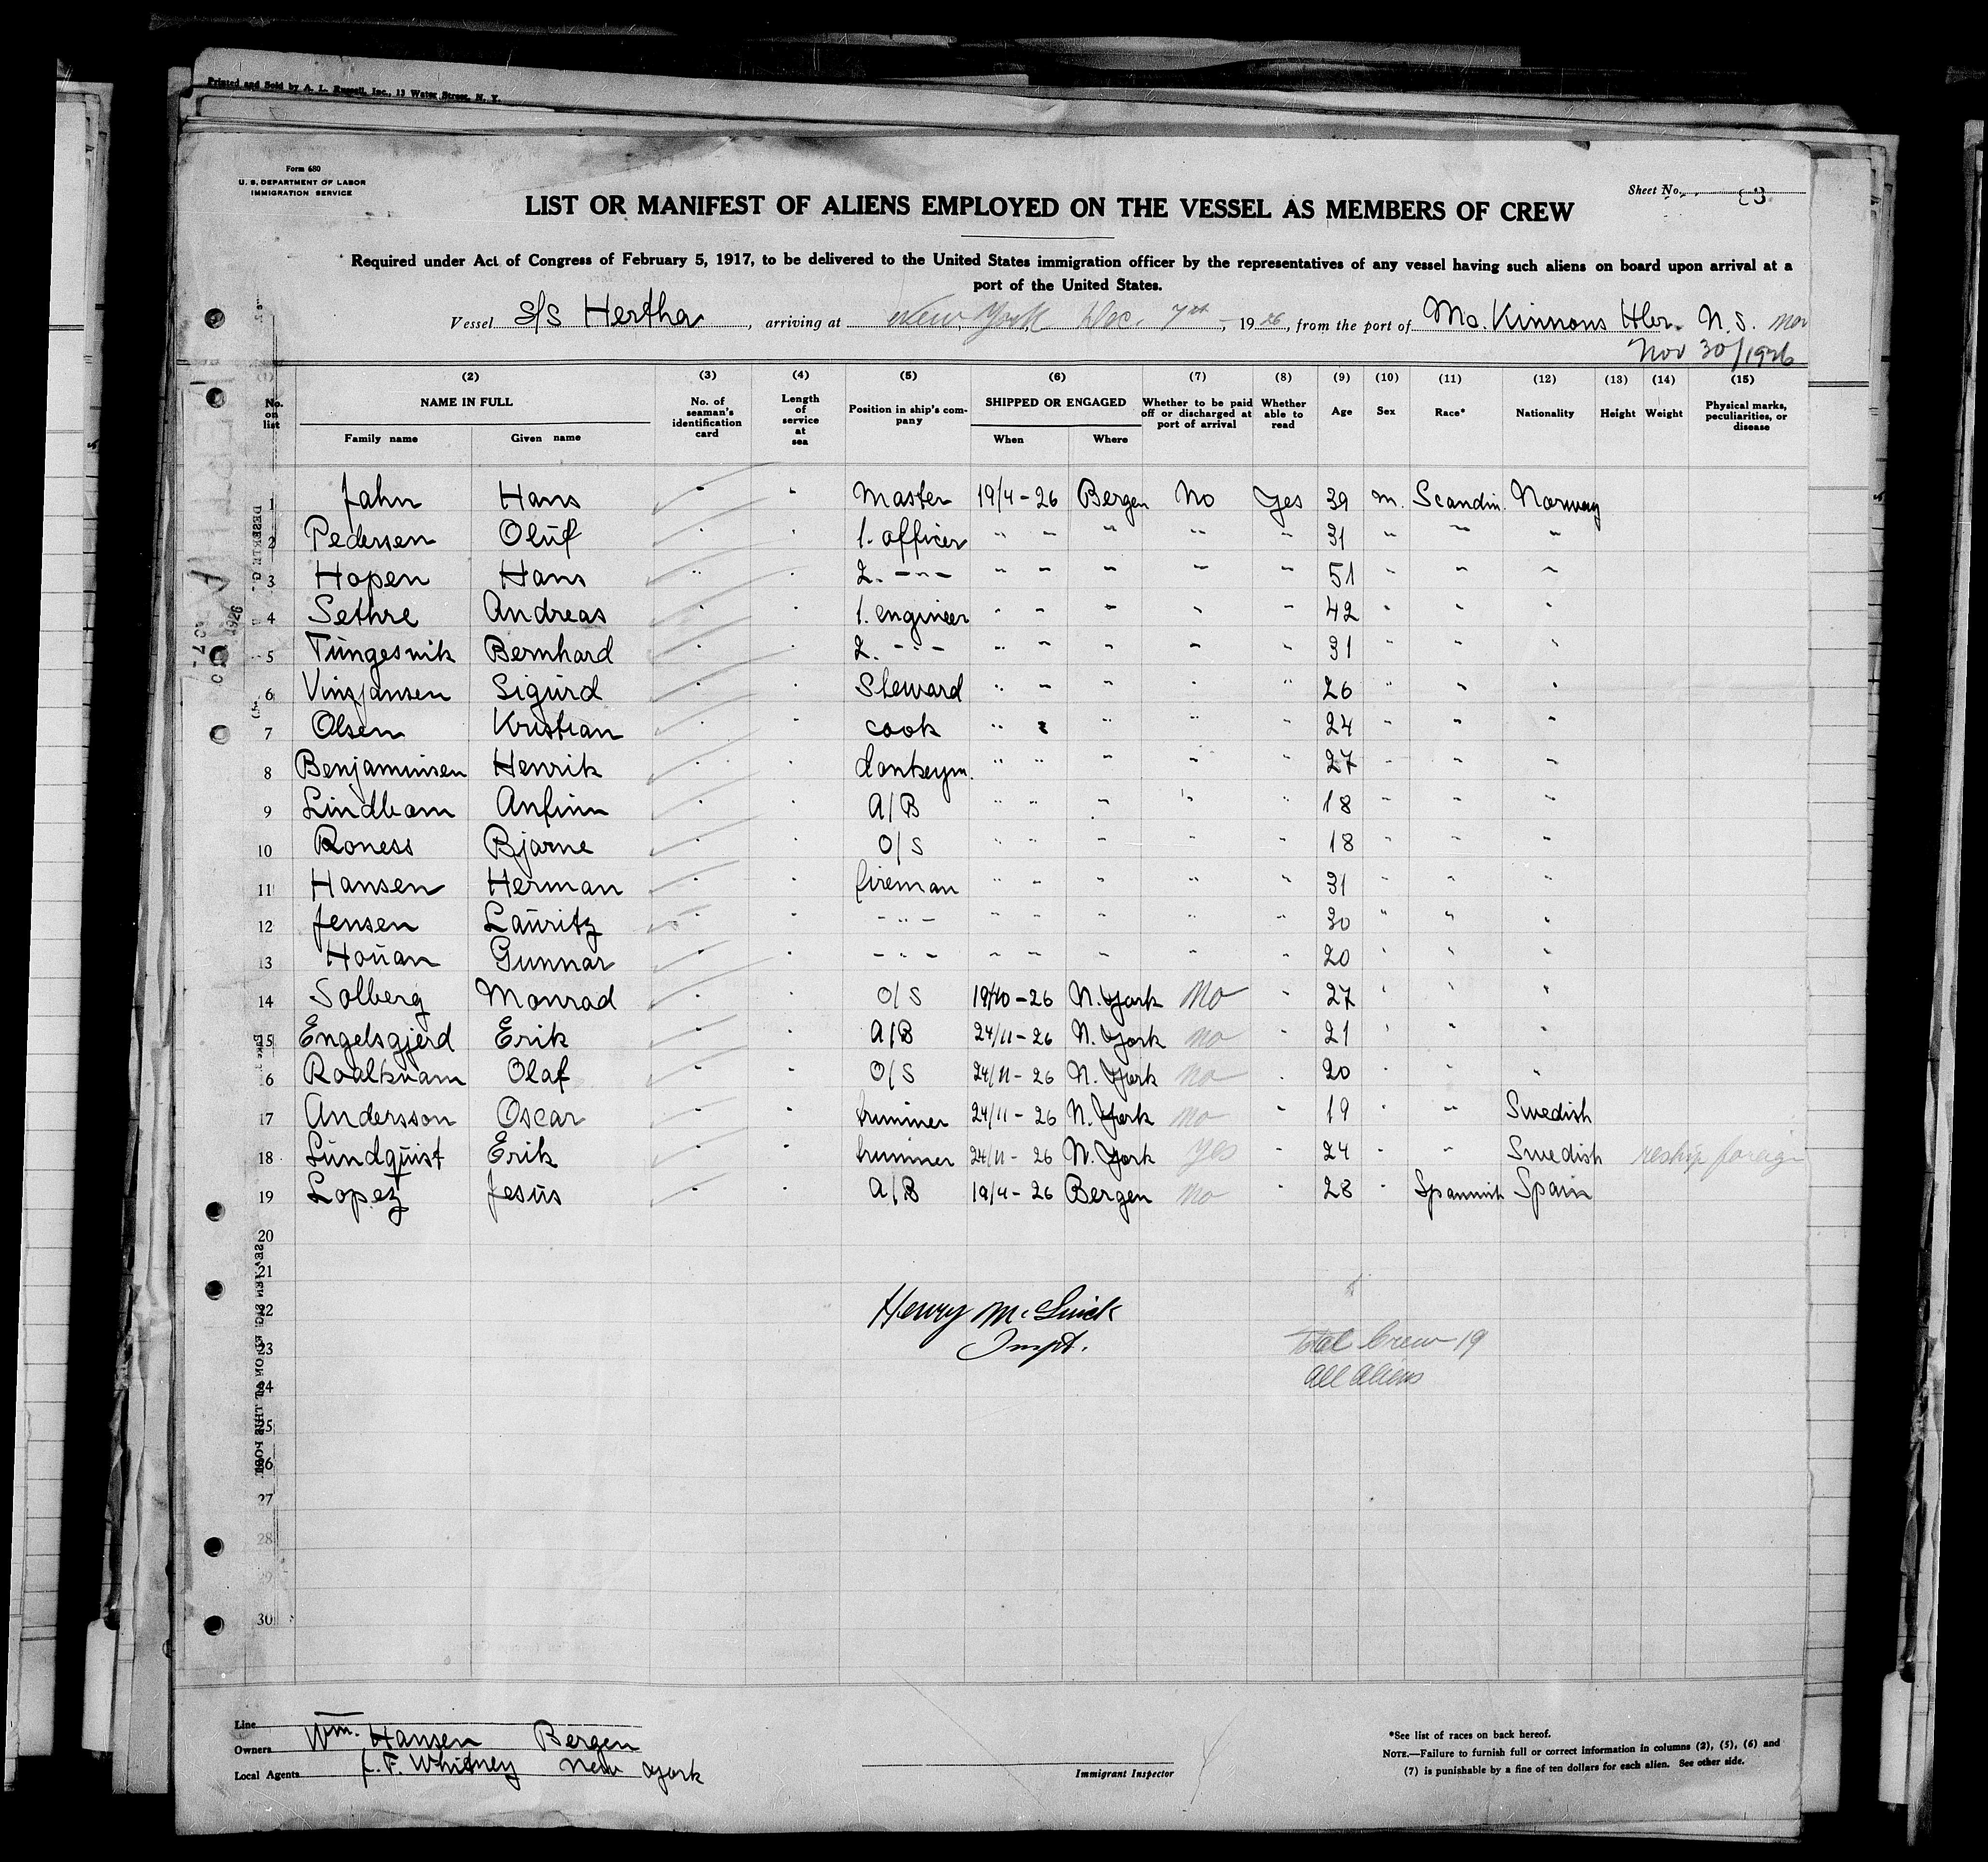 Printed and Sold by A. L. Russell, Inc., 13 Water Street, N. Y.
Form 680
U. S. DEPARTMENT OF LABOR
IMMIGRATION SERVICE
Sheet No.
LIST OR MANIFEST OF ALIENS EMPLOYED ON THE VESSEL AS MEMBERS OF CREW
Required under Act of Congress of February 5, 1917, to be delivered to the United States immigration officer by the representatives of any vessel having such aliens on board upon arrival at a
port of the United States.
Vessel S/S Hertha, arriving at New York Dec. 7th, 1926, from the port of Mc. Kinnons Hbr. N.S.
Nov 30/1926
(1) (2) (3) (4) (5) (6) (7) (8) (9) (10) (11) (12) (13) (14) (15)
No. on list NAME IN FULL Family name Given name No. of seaman's identification card Length of service at sea Position in ship's company SHIPPED OR ENGAGED When Where Whether to be paid off or discharged at port of arrival Whether able to read Age Sex Race* Nationality Height Weight Physical marks, peculiarities, or disease
1 Jahn Hans " " Master 19/4-26 Bergen No Yes 39 m. Scandin. Norway
2 Pedersen Oluf " 1. officer " " " " " 31 " " "
3 Hopen Hans " " 2. -"- " " " " " 51 " " "
4 Sethre Andreas " " 1. engineer " " " " " 42 " " "
5 Tungesvik Bernhard " " 2. -"- " " " " " 31 " " "
6 Vinsjansen Sigurd " " Steward " " " " " 26 " " "
7 Olsen Kristian " " cook " " " " " 24 " " "
8 Benjaminsen Henrik " " donkeym. " " " " " 27 " " "
9 Lindbom Anfinn " " A/B " " " " " 18 " " "
10 Roness Bjarne " " O/S " " " " " 18 " " "
11 Hansen Herman " " fireman " " " " " 31 " " "
12 Jensen Lauritz " " -"- " " " " " 30 " " "
13 Houan Gunnar " " -"- " " " " " 20 " " "
14 Solberg Monrad " " O/S 19/10-26 N. York No " 27 " " "
15 Engelsgjerd Erik " " A/B 24/11-26 N. York no " 21 " " "
16 Roalkvam Olaf " " O/S 24/11-26 N. York no " 20 " " "
17 Andersson Oscar " " trimmer 24/11-26 N. York no " 19 " " Swedish
18 Lundquist Erik " " trimmer 24/11-26 N. York yes " 24 " " Swedish reship foreign
19 Lopez Jesus " " A/B 19/4-26 Bergen no " 28 " Spannish Spain
20
21
22
23
24
25
26
27
28
29
30
Henry Mc
Inspt.
Total Crew 19
All aliens
Line
Owners Wm. Hansen Bergen
Local Agents J. F. Whitney New York
Immigrant Inspector
*See list of races on back hereof.
NOTE.—Failure to furnish full or correct information in columns (2), (5), (6) and
(7) is punishable by a fine of ten dollars for each alien. See other side.